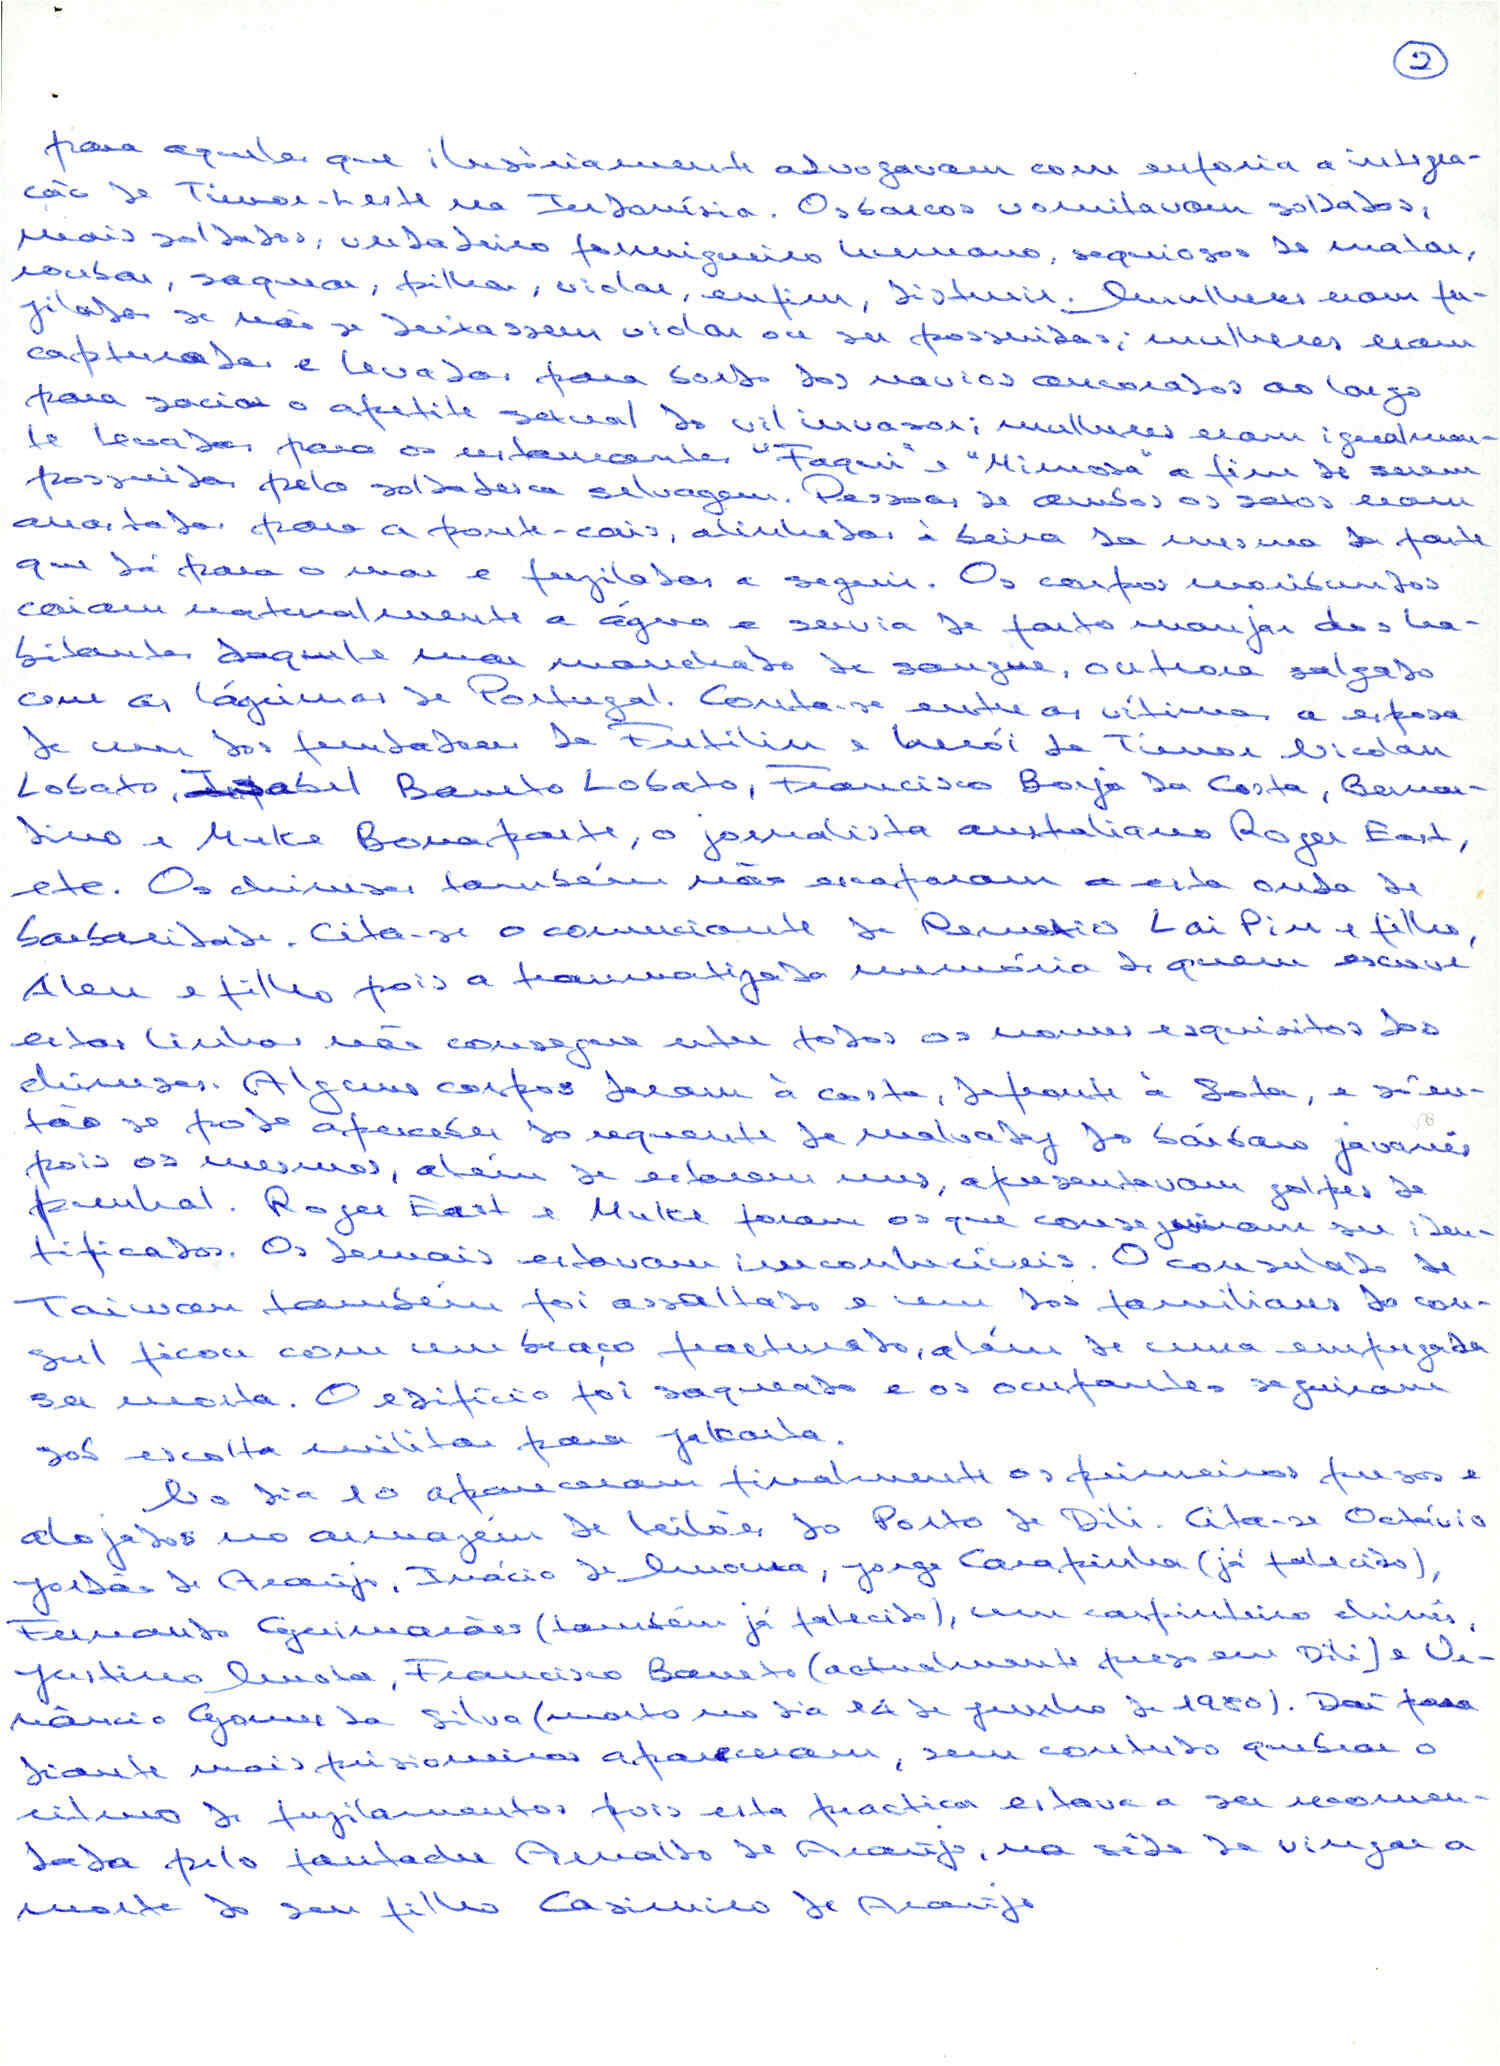 2
para aqueles que ilusòriamente advogavam com euforia a integra-
ção de Timor-Leste na Indonísia. Os barcos vomitavam soldados,
mais soldados, verdadeiro formigueiro humano, sequiosos de matar,
roubar, saquear, pilhar, violar, enfim, distruir. Mulheres eram fu-
ziladas se não se deixassem violar ou ser possuidas; mulheres eram
capturadas e levadas para bordo dos navios ancorados ao largo
para saciar o apetite sexual do vil invasor; mulheres eram igualmen-
te levadas para os restaurantes "Faqui" e "Mimosa" a fim de serem
possuidas pela soldadesca selvagem. Pessoas de ambos os sexos eram
arrastadas para a ponte-cais, alinhadas à beira da mesma da parte
que dá para o mar e fuziladas a seguir. Os corpos moribundos
caiam naturalmente a água e servia de farto manjar dos ha-
bitantes daquele mar manchado de sangue, outrora salgado
com as lágrimas de Portugal. Conta-se entre as vítimas a esposa
de um dos fundadores da Fretilin e herói de Timor Nicolau
Lobato, Isabel Barreto Lobato, Francisco Borja da Costa, Bernar-
dino e Muke Bonaparte, o jornalista australiano Roger East,
etc. Os chineses também não escaparam a esta onda de
barbaridade. Cita-se o comerciante de Remexio Lai Pin e filho,
Alen e filho pois a traumatizada memória de quem escreve
estas linhas não consegue reter todos os nomes esquisitos dos
chineses. Alguns corpos deram à costa, defronte à Sota, e só en-
tão se pode aperceber do requente de malvadez do bárbaro javanês
pois os mesmos, além de estarem nus, apresentavam golpes de
punhal. Roger East e Muke foram os que conseguiram ser iden-
tificados. Os demais estavam irreconhecíveis. O consulado de
Taiwan também foi assaltado e um dos familiares do con-
sul ficou com um braço fracturado, além de uma empregada
ser morta. O edifício foi saqueado e os ocupantes seguiram
sob escolta militar para Jakarta.
No dia 10 apareceram finalmente os primeiros presos e
alojados no armazém de leilões do Porto de Dili. Cita-se Octávio
Jordão de Araújo, Inácio de Moura, Jorge Carapinha (já falecido),
Fernando Guimarães (também já falecido), um carpinteiro chinês,
Justino Mota, Francisco Barreto (actualmente preso em Dili) e Ve-
nâncio Gomes da Silva (morto no dia 14 de junho de 1980). Daí para
diante mais prisioneiros apareceram, sem contudo quebrar o
ritmo de fuzilamentos pois esta practica estava a ser recomen-
dada pelo fantoche Arnaldo de Araújo, na sêde de vingar a
morte do seu filho Casimiro de Araújo